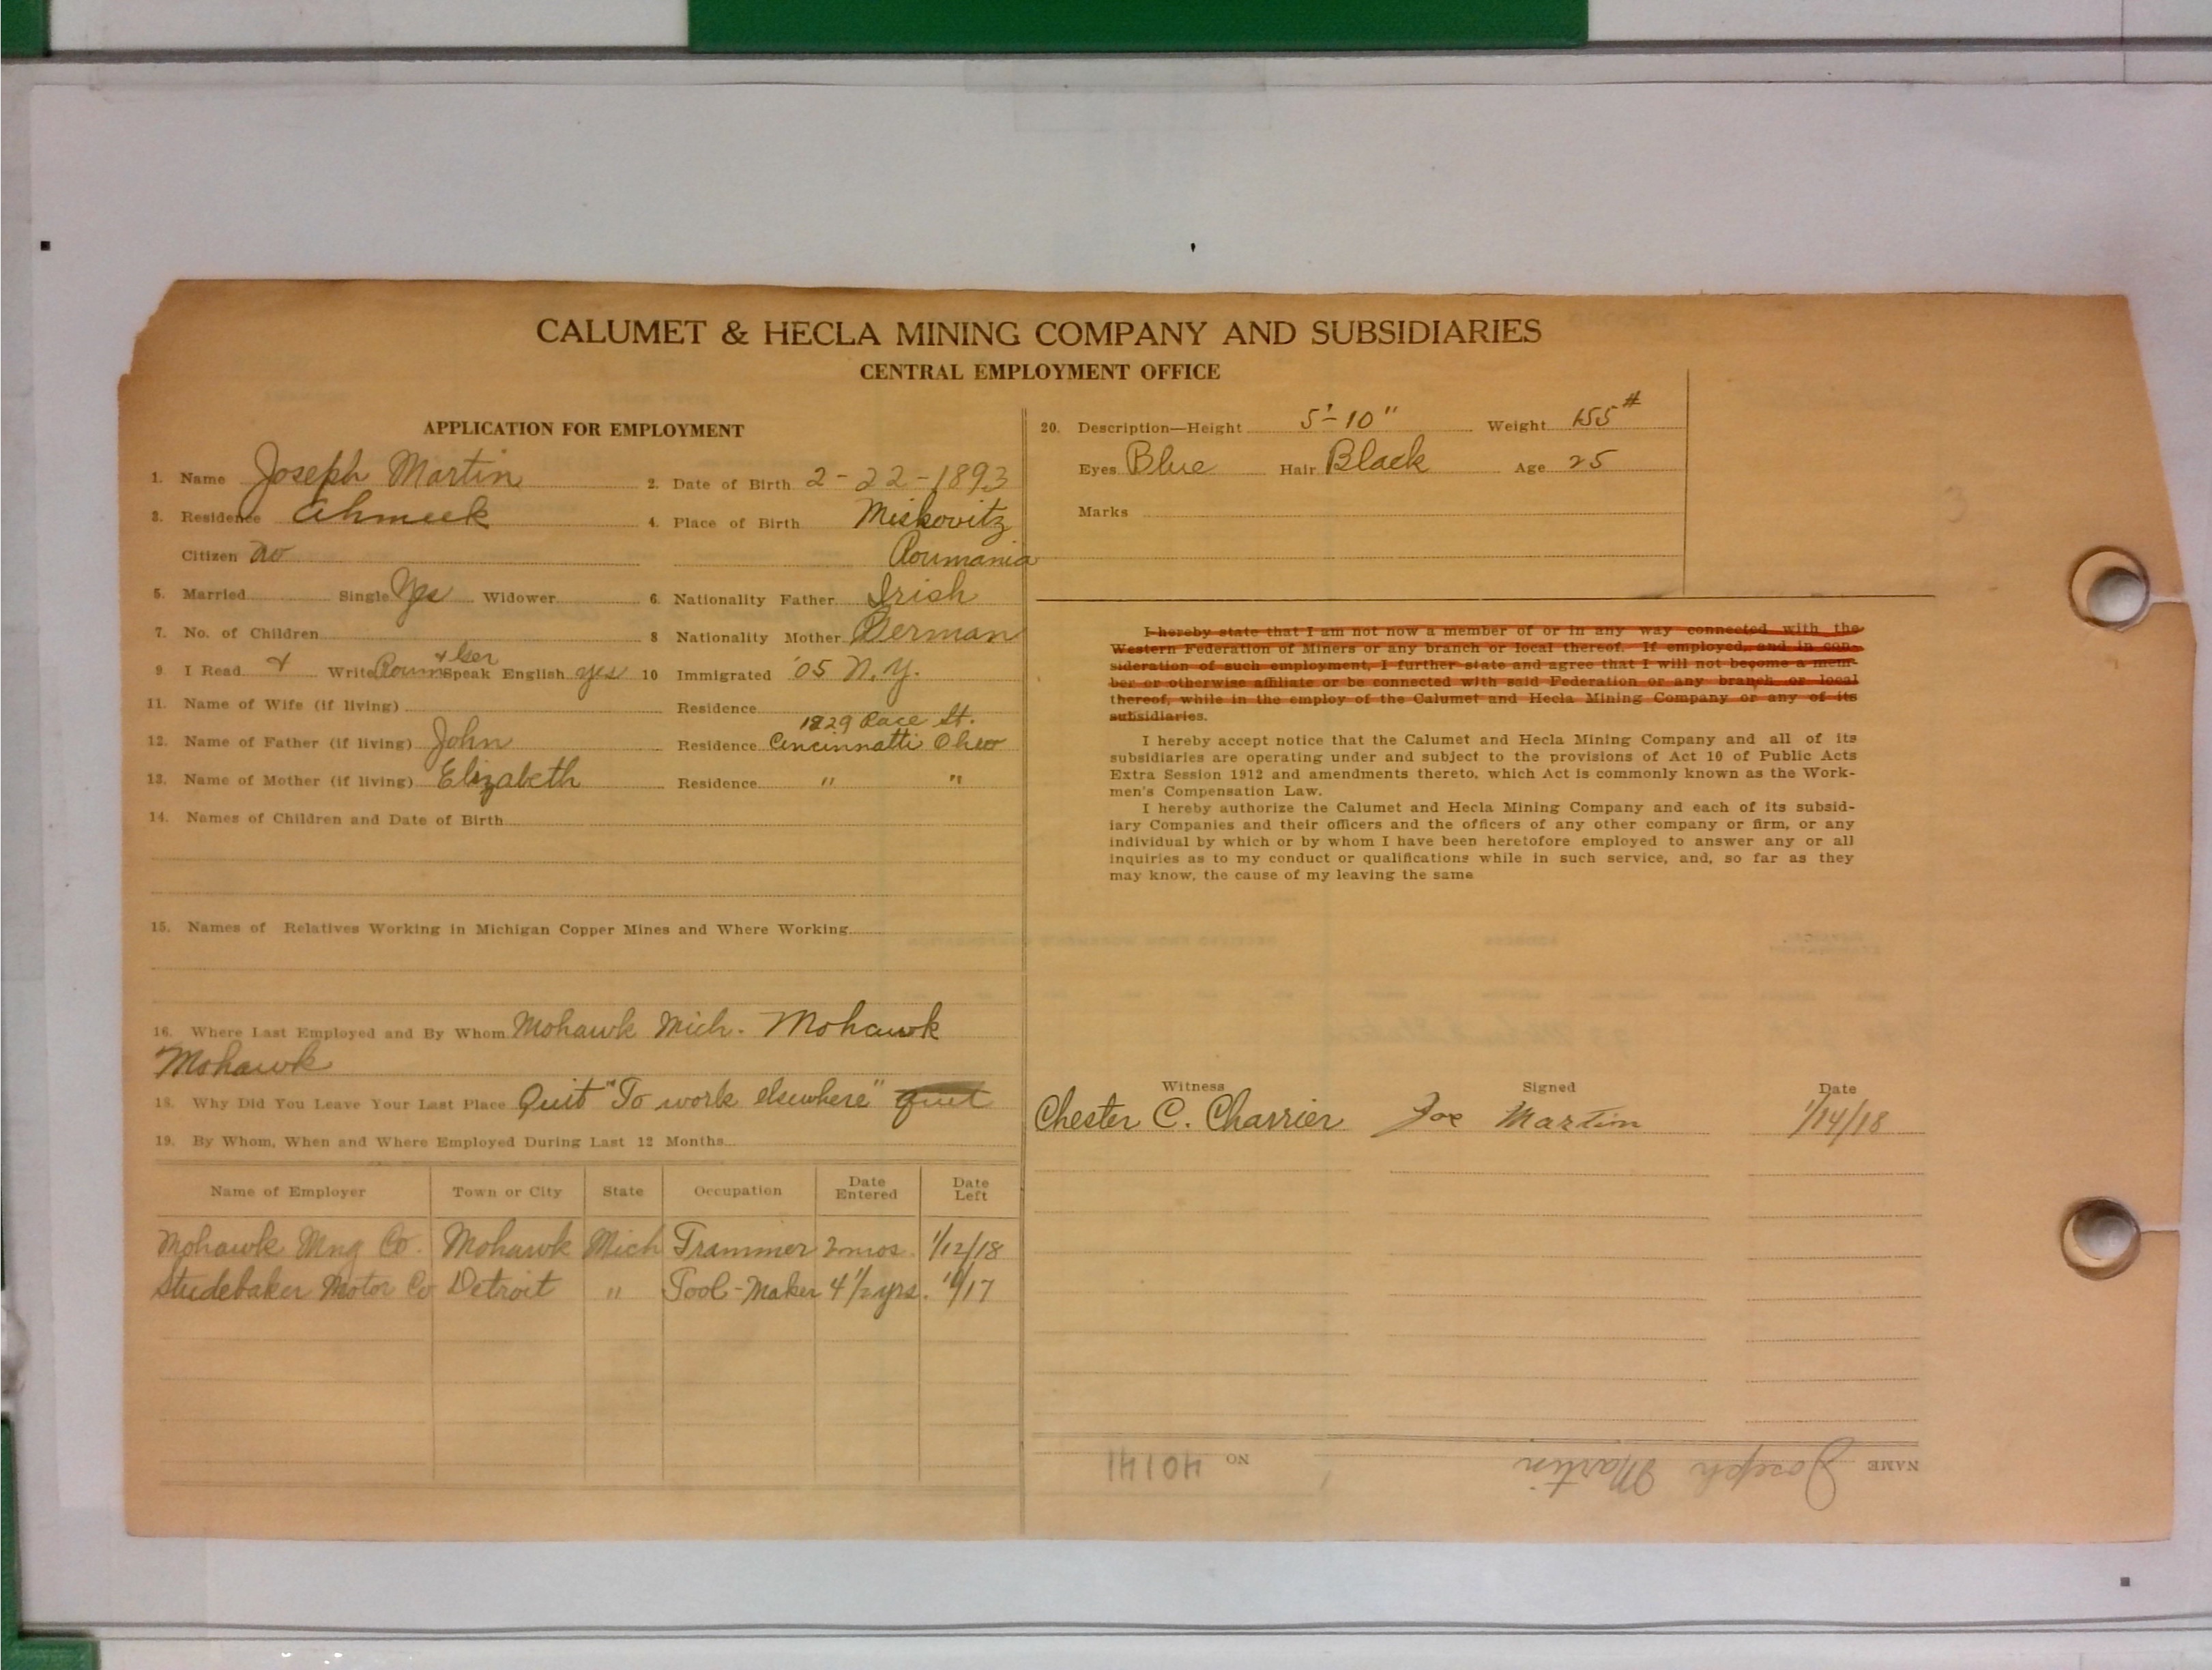 CALUMET & HECLA MINING COMPANY AND SUBSIDIARIES
CENTRAL EMPLOYMENT OFFICE
APPLICATION FOR EMPLOYMENT
1. Name Joseph Martin 2. Date of Birth 2-22-1893
3. Residence Ahmeek 4. Place of Birth Miskovitz
Citizen no Roumania
5. Married Single Yes Widower 6. Nationality Father Irish
7. No. of Children 8 Nationality Mother German
9 I Read + Write Roum + Ger Speak English yes 10 Immigrated '05 N.Y.
11. Name of Wife (if living) Residence
1829 Race St.
12. Name of Father (if living) John Residence Cincinnatti Ohio
13. Name of Mother (if living) Elizabeth Residence " "
14. Names of Children and Date of Birth
15. Names of Relatives Working in Michigan Copper Mines and Where Working
16. Where Last Employed and By Whom Mohawk Mich. Mohawk
Mohawk
18. Why Did You Leave Your Last Place Quit "To work elsewhere" quit
19. By Whom, When and Where Employed During Last 12 Months
Name of Employer Town or City State Occupation Date Entered Date Left
Mohawk Mng Co. Mohawk Mich Trammer 2 mos. 1/12/18
Studebaker Motor Co Detroit " Tool-Maker 4 1/2 yrs. 11/17
20. Description—Height 5'-10" Weight 155#
Eyes Blue Hair Black Age 25
Marks
I hereby state that I am not now a member of or in any way connected with the
Western Federation of Miners or any branch or local thereof. If employed, and in con-
sideration of such employment, I further state and agree that I will not become a mem-
ber or otherwise affiliate or be connected with said Federation or any branch or local
thereof, while in the employ of the Calumet and Hecla Mining Company or any of its
subsidiaries.
I hereby accept notice that the Calumet and Hecla Mining Company and all of its
subsidiaries are operating under and subject to the provisions of Act 10 of Public Acts
Extra Session 1912 and amendments thereto, which Act is commonly known as the Work-
men's Compensation Law.
I hereby authorize the Calumet and Hecla Mining Company and each of its subsid-
iary Companies and their officers and the officers of any other company or firm, or any
individual by which or by whom I have been heretofore employed to answer any or all
inquiries as to my conduct or qualifications while in such service, and, so far as they
may know, the cause of my leaving the same
Witness Signed Date
Chester C. Charrier Joe Martin 1/14/18
NAME Joseph Martin NO 40141